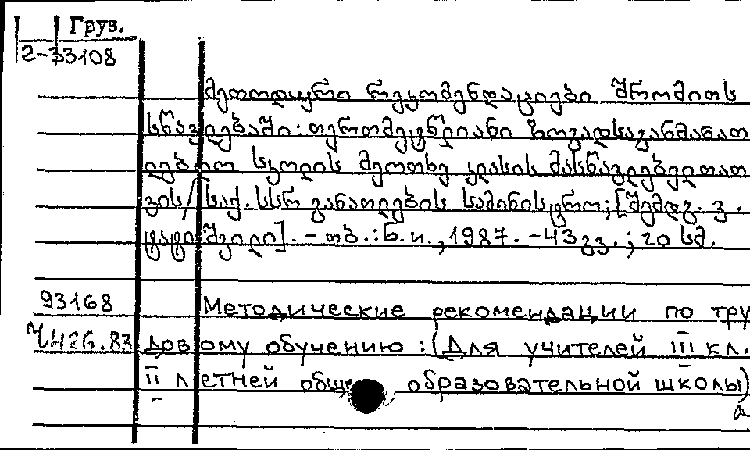 Груз.
2-33108
მეთოდიური რეკომენდაციები შრომით
სწავლებაში: თერთმეტწლიანი ზოგადსაგანმანათ
ლებლო სკოლის მეოთხე კლასის მასწავლებელთათ
ვის/საქ. სსრ განათლების სამინისტრო; [შემდგ. ვ.
ტატიშვილი]. – თბ.: ნ. ი., 1987. – 43 გვ. ; 20 სმ.
93168 Методические рекомендации по тру
Ч426.83 довому обучению: (Для учителей III кл.
II летней обще образовательной школы)